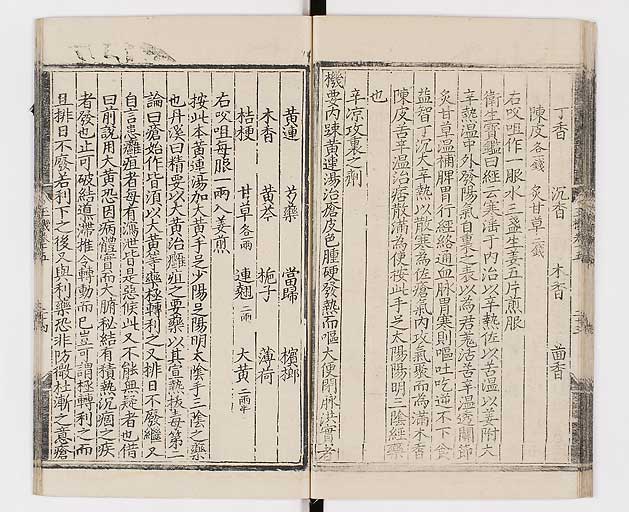 丁香 沉香 木香 茴香
陳皮各一錢 炙甘草二錢
右㕮咀作一服水二盞生姜五片煎服
衛生寳鑑曰經云寒淫于內治以辛熱佐以苦溫以姜附大
辛熱溫中外發陽氣自裏之表以為君羗活苦辛溫透關節
炙甘草溫補脾胃行經絡通血脉胃寒則嘔吐吃逆不下食
益智丁沉大辛熱以散寒為佐瘡氣內攻氣聚而為滿木香
陳皮苦辛溫治痞散滿為使按此手足太陽陽明三陰經藥
也
辛凉攻裏之劑
機要內踈黃連湯治瘡皮色腫硬發熱而嘔大便閉脉洪實者
黃連 芍藥 當歸 檳榔
木香 黃芩 梔子 薄荷
桔梗 甘草各一兩 連翹二兩 大黃二兩半
右㕮咀每服一兩入姜煎
按此本黃連湯加大黃手足少陽足陽明太陰手三陰之藥
也丹溪曰精要以大黃治癰疽之要藥以其宣熱拔毒第二
論曰瘡始作皆須以大黃等藥極轉利之又排日不廢繼又
自言患癰疽者每有瀉泄皆是惡候此又不能無疑者也借
曰前說用大黃恐因病體實而大腑秘結有積熱沉痼之疾
者發也止可破結導滯推令轉動而已豈可謂極轉利之而
且排日不廢若利下之後又與利藥恐非防微杜漸之意瘡